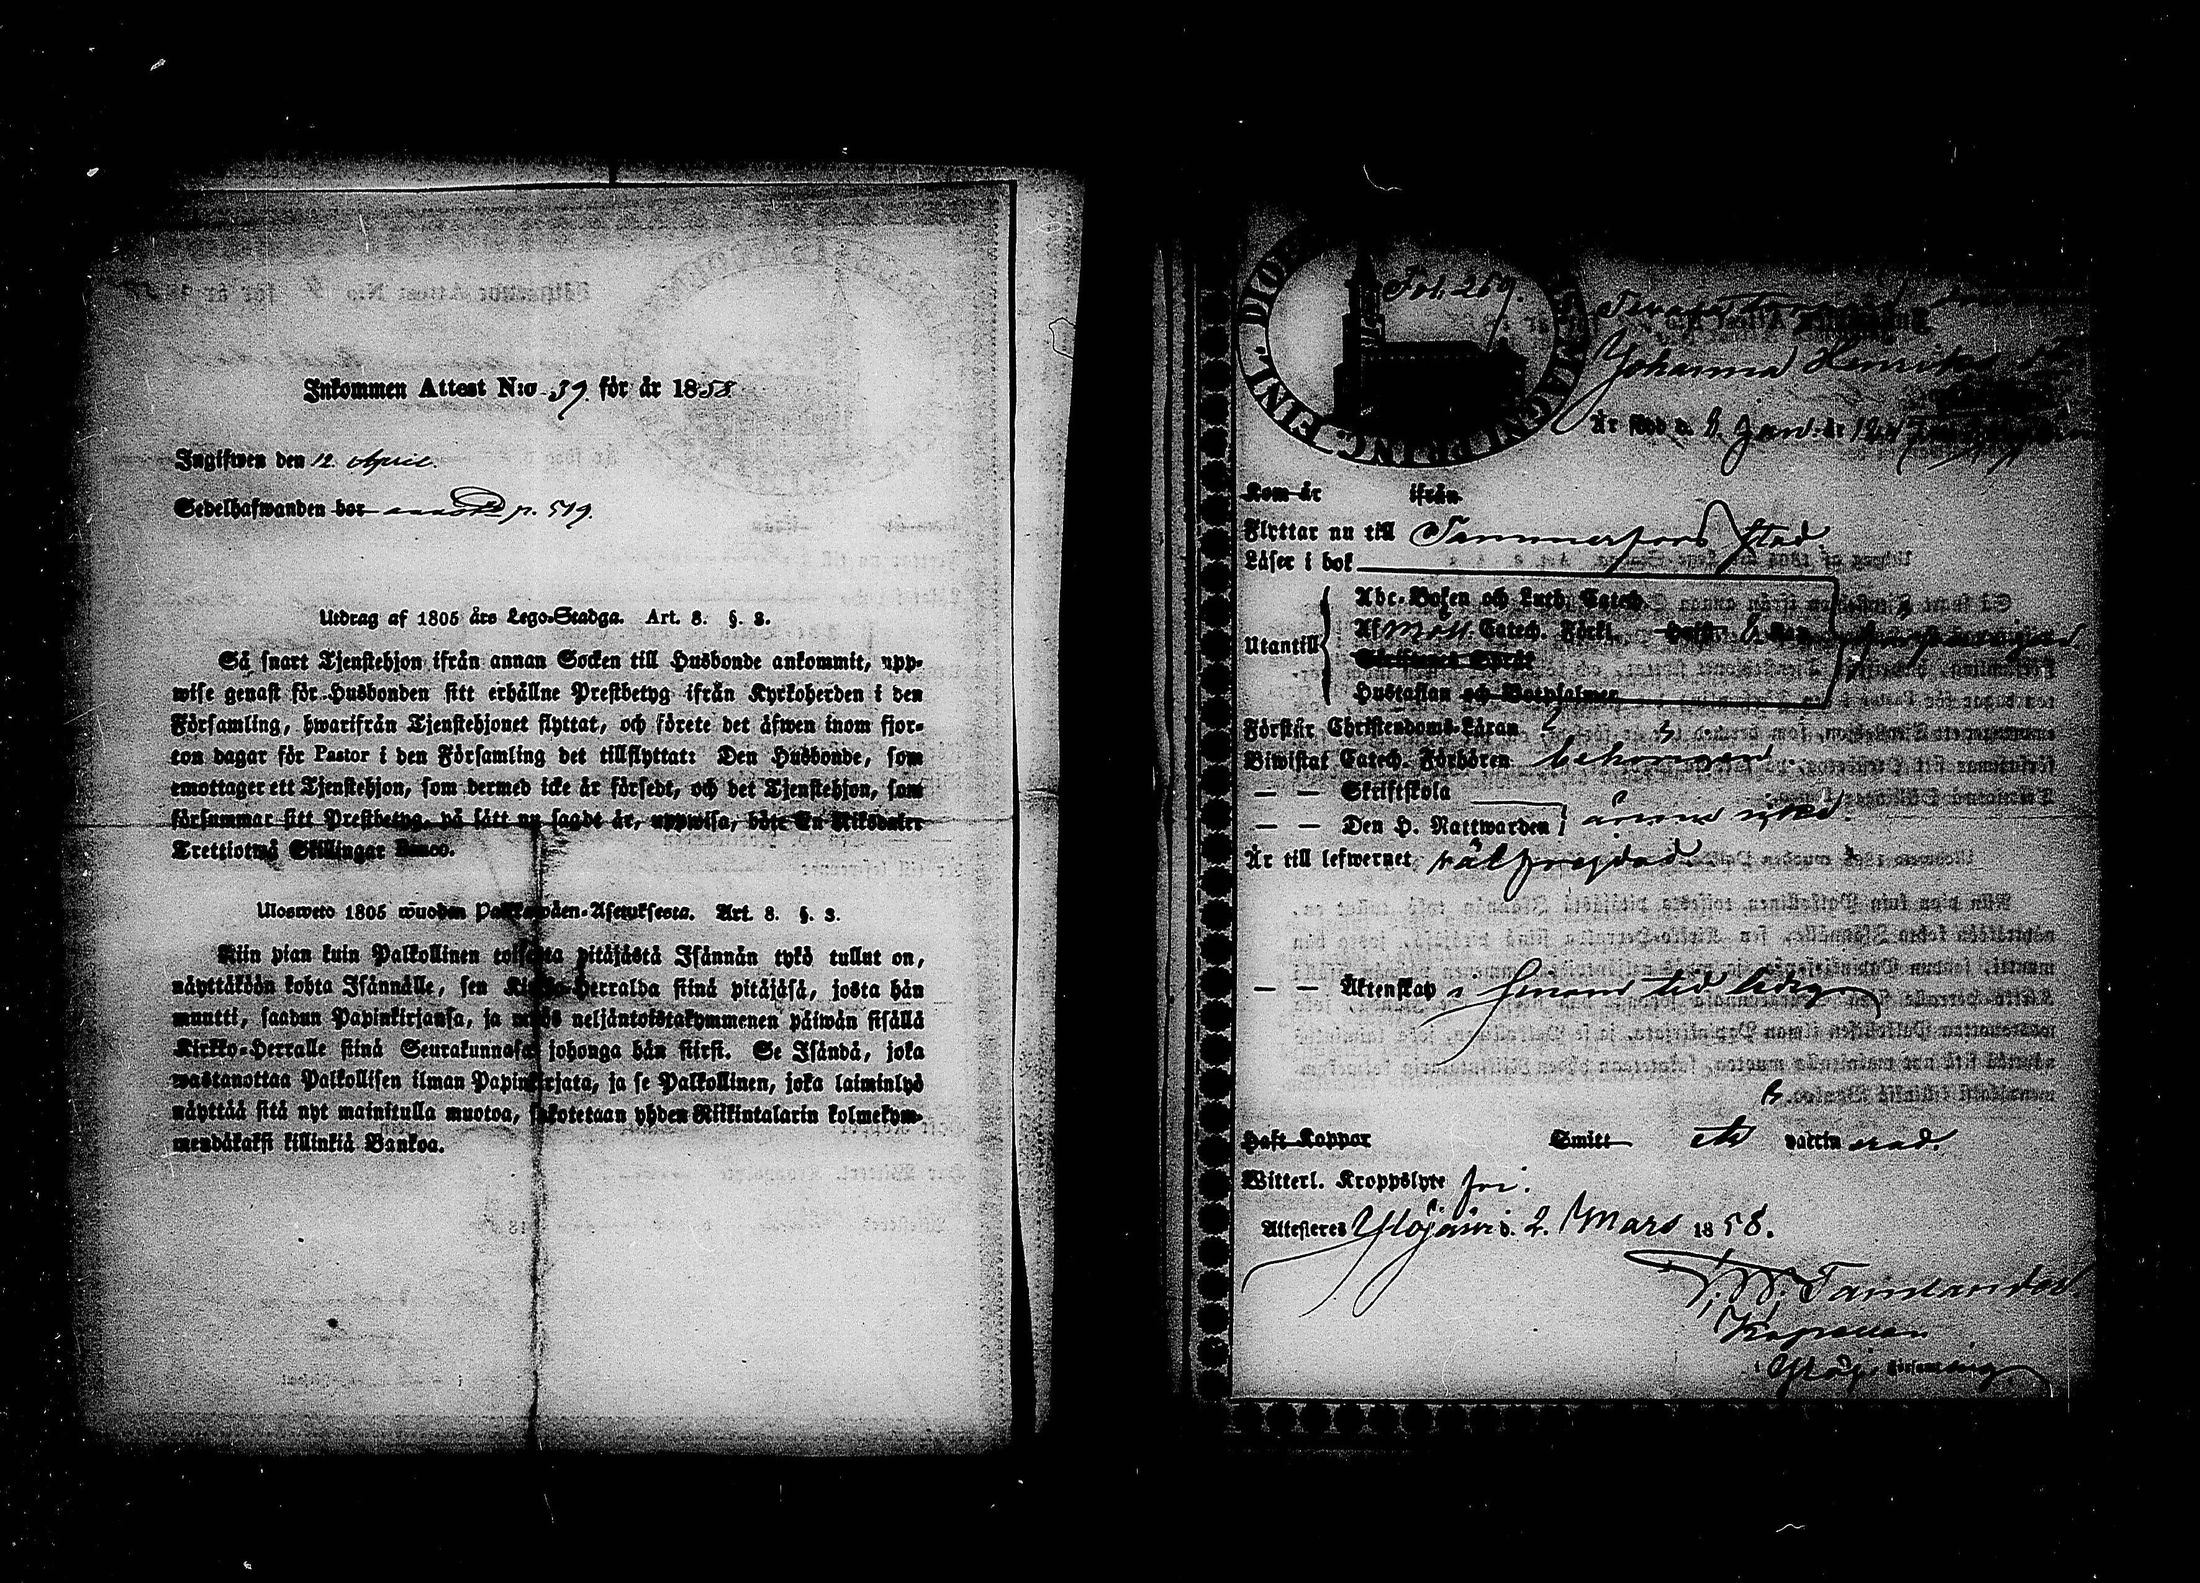 Inkommen Attest N:o 39 för år 1858
Ingifwen den 12. April.
Sedelhafwanden bor p. 519.
Utdrag af 1805 års Lego-Stadga. Art. 8. §. 3.
Så snart Tjenstehjon ifrån annan Socken till Husbonde ankommit, upp-
wise genast för Husbonden sitt erhållne Prestbetyg ifrån Kyrkoherden i den
Församling, hwarifrån Tjenstehjonet flyttat, och förete det äfwen inom fjor-
ton dagar för Pastor i den Församling det tillflyttat: Den Husbonde, som
emottager ett Tjenstehjon, som dermed icke är försedt, och det Tjenstehjon, som
försummar sitt Prestbetyg, på sätt nu sagdt är, uppwisa, böte En Riksdaler
Trettiotwå Skillingar Banco.
Ulosweto 1805 wuoden Palkkawäen-Asetuksesta. Art. 8. §. 3.
Niin pian kuin Palkollinen toisesta pitäjästä Isännän tykö tullut on,
näyttäköön kohta Isännälle, sen Kirkko-Herralda siinä pitäjäsä, josta hän
muutti, saadun Papinkirjansa, ja myös neljäntoistakymmenen päiwän sisällä
Kirkko-Herralle siinä Seurakunnasa johonga hän siirsi. Se Isändä, joka
wastanottaa Palkollisen ilman Papinkirjata, ja se Palkollinen, joka laiminlyö
näyttää sitä nyt mainitulla muotoa, sakotetaan yhden Riikintalarin kolmekym-
mendäkaksi killinkiä Bankoa.
Fol. 259.
Johanna Henriks
Är född d. 8. Jan. år
Kom år ifrån
Flyttar nu till Tammerfors Stad
Läser i bok
Utantill
Abc-Boken och Luth. Catech.
Af Moll. Catech. Förkl.
Skriftenes Språk
Hustaflan och Botpsalmer
Förstår Christendoms-Läran
Biwistat Catech. Förhören behörigen
— — Skriftskola
— — Den H. Nattwarden
Är till lefwernet välfrejdad
— — Äktenskap i
Haft Koppor Smitt vaccinerad.
Witterl. Kroppslyte fri.
Attesteras Ylöjärvi d. 2. Mars 1858.
Kapellan
i Ylöj. församling